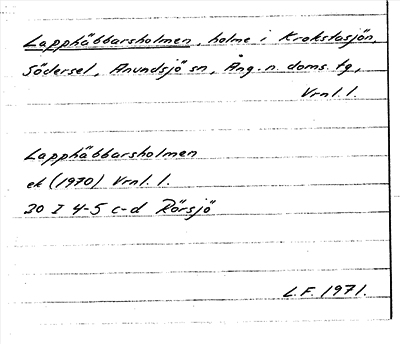 Lapphäbbarsholmen, holme i Krokstasjön,
Södersel, Anundsjö sn, Ång. n. doms. tg,
Vrnl. l.
Lapphäbbarsholmen
ek (1970) Vrnl. l.
20 I 4-5 c-d Rörsjö
L.F. 1971.